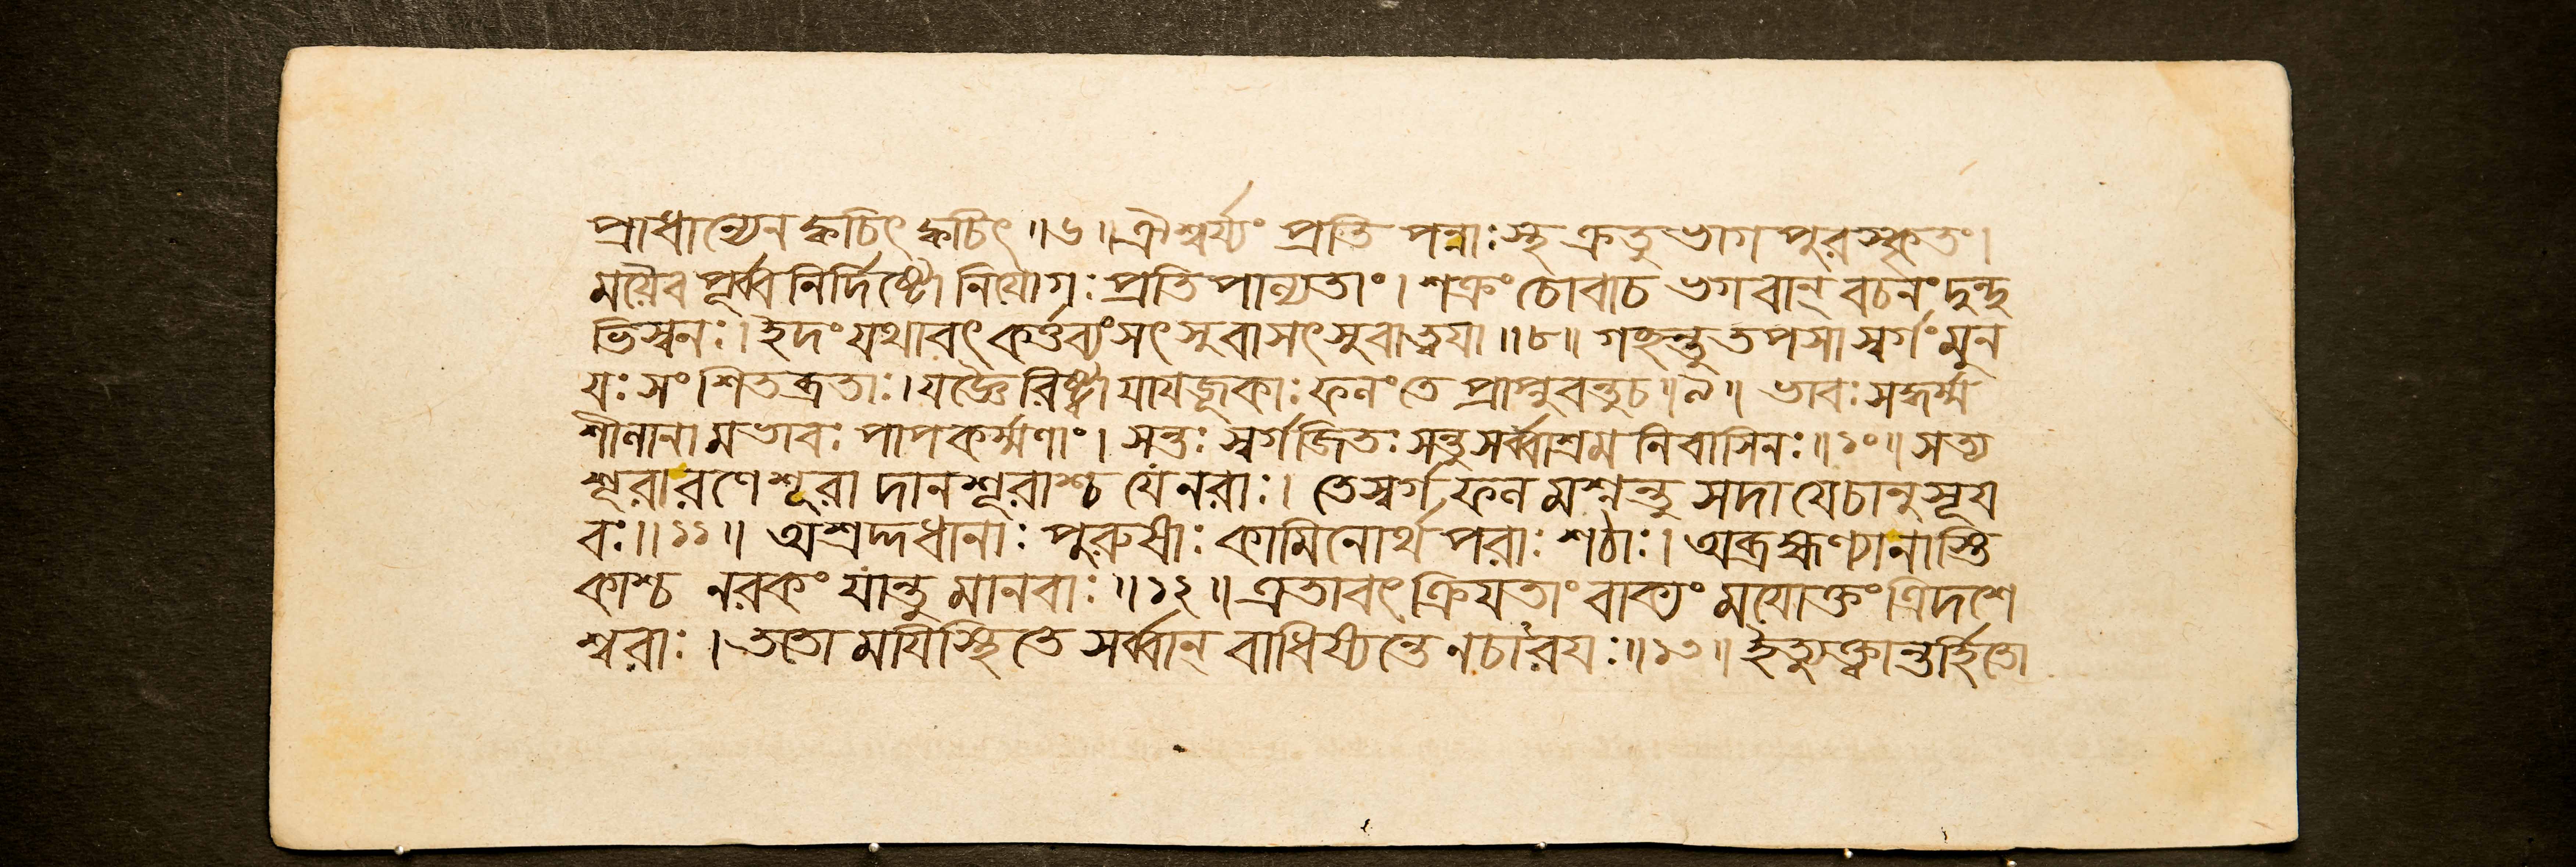 প্রাধান্যেন ক্বচিৎ ক্বচিৎ ॥৬॥ ঐশ্বর্য্যং প্রতি পন্নাঃস্থ ক্রতু ভাগ পুরস্কৃতং।
ময়ৈব পূর্ব্ব নির্দিষ্টো নিযোগঃ প্রতি পাল্যতাং। শক্রং চোবাচ ভগবান্ বচনং দুন্দু
ভিস্বনঃ। ইদং যথাবৎ কর্ত্তব্যং সৎ সুবাসৎ সুবা ত্বযা ॥৮॥ গছন্তু তপসা স্বর্গং মুন
যঃ সংশিতব্রতাঃ। যজ্ঞৈ রিষ্ট্বা যাযজূকাঃ ফলং তে প্রাপ্নুবন্তুচ ॥৯॥ ভাবঃ সদ্ধর্ম্ম
শীলানা মভাবঃ পাপকর্ম্মণাং। সন্তঃ স্বর্গজিতঃ সন্তু সর্ব্বাশ্রম নিবাসিনঃ ॥১০॥ সত্য
শূরারণে শূরা দানশূরাশ্চ যে নরাঃ। তেস্বর্গ ফল মশ্নন্তু সদা যেচানুসূয
বঃ ॥১১॥ অশ্রদ্দধানাঃ পুরুষাঃ কামিনোর্থ পরাঃ শঠাঃ। অব্রহ্মণ্যানাস্তি
কাশ্চ নরকং যান্তু মানবাঃ ॥১২॥ এতাবৎ ক্রিযতাং বাক্যং মযোক্তং ত্রিদশে
শ্বরাঃ। ততো মযিস্থিতে সর্ব্বান্ বাধিষ্যন্তে নচারযঃ ॥১৩॥ ইত্যুক্ত্বান্তর্হিতো